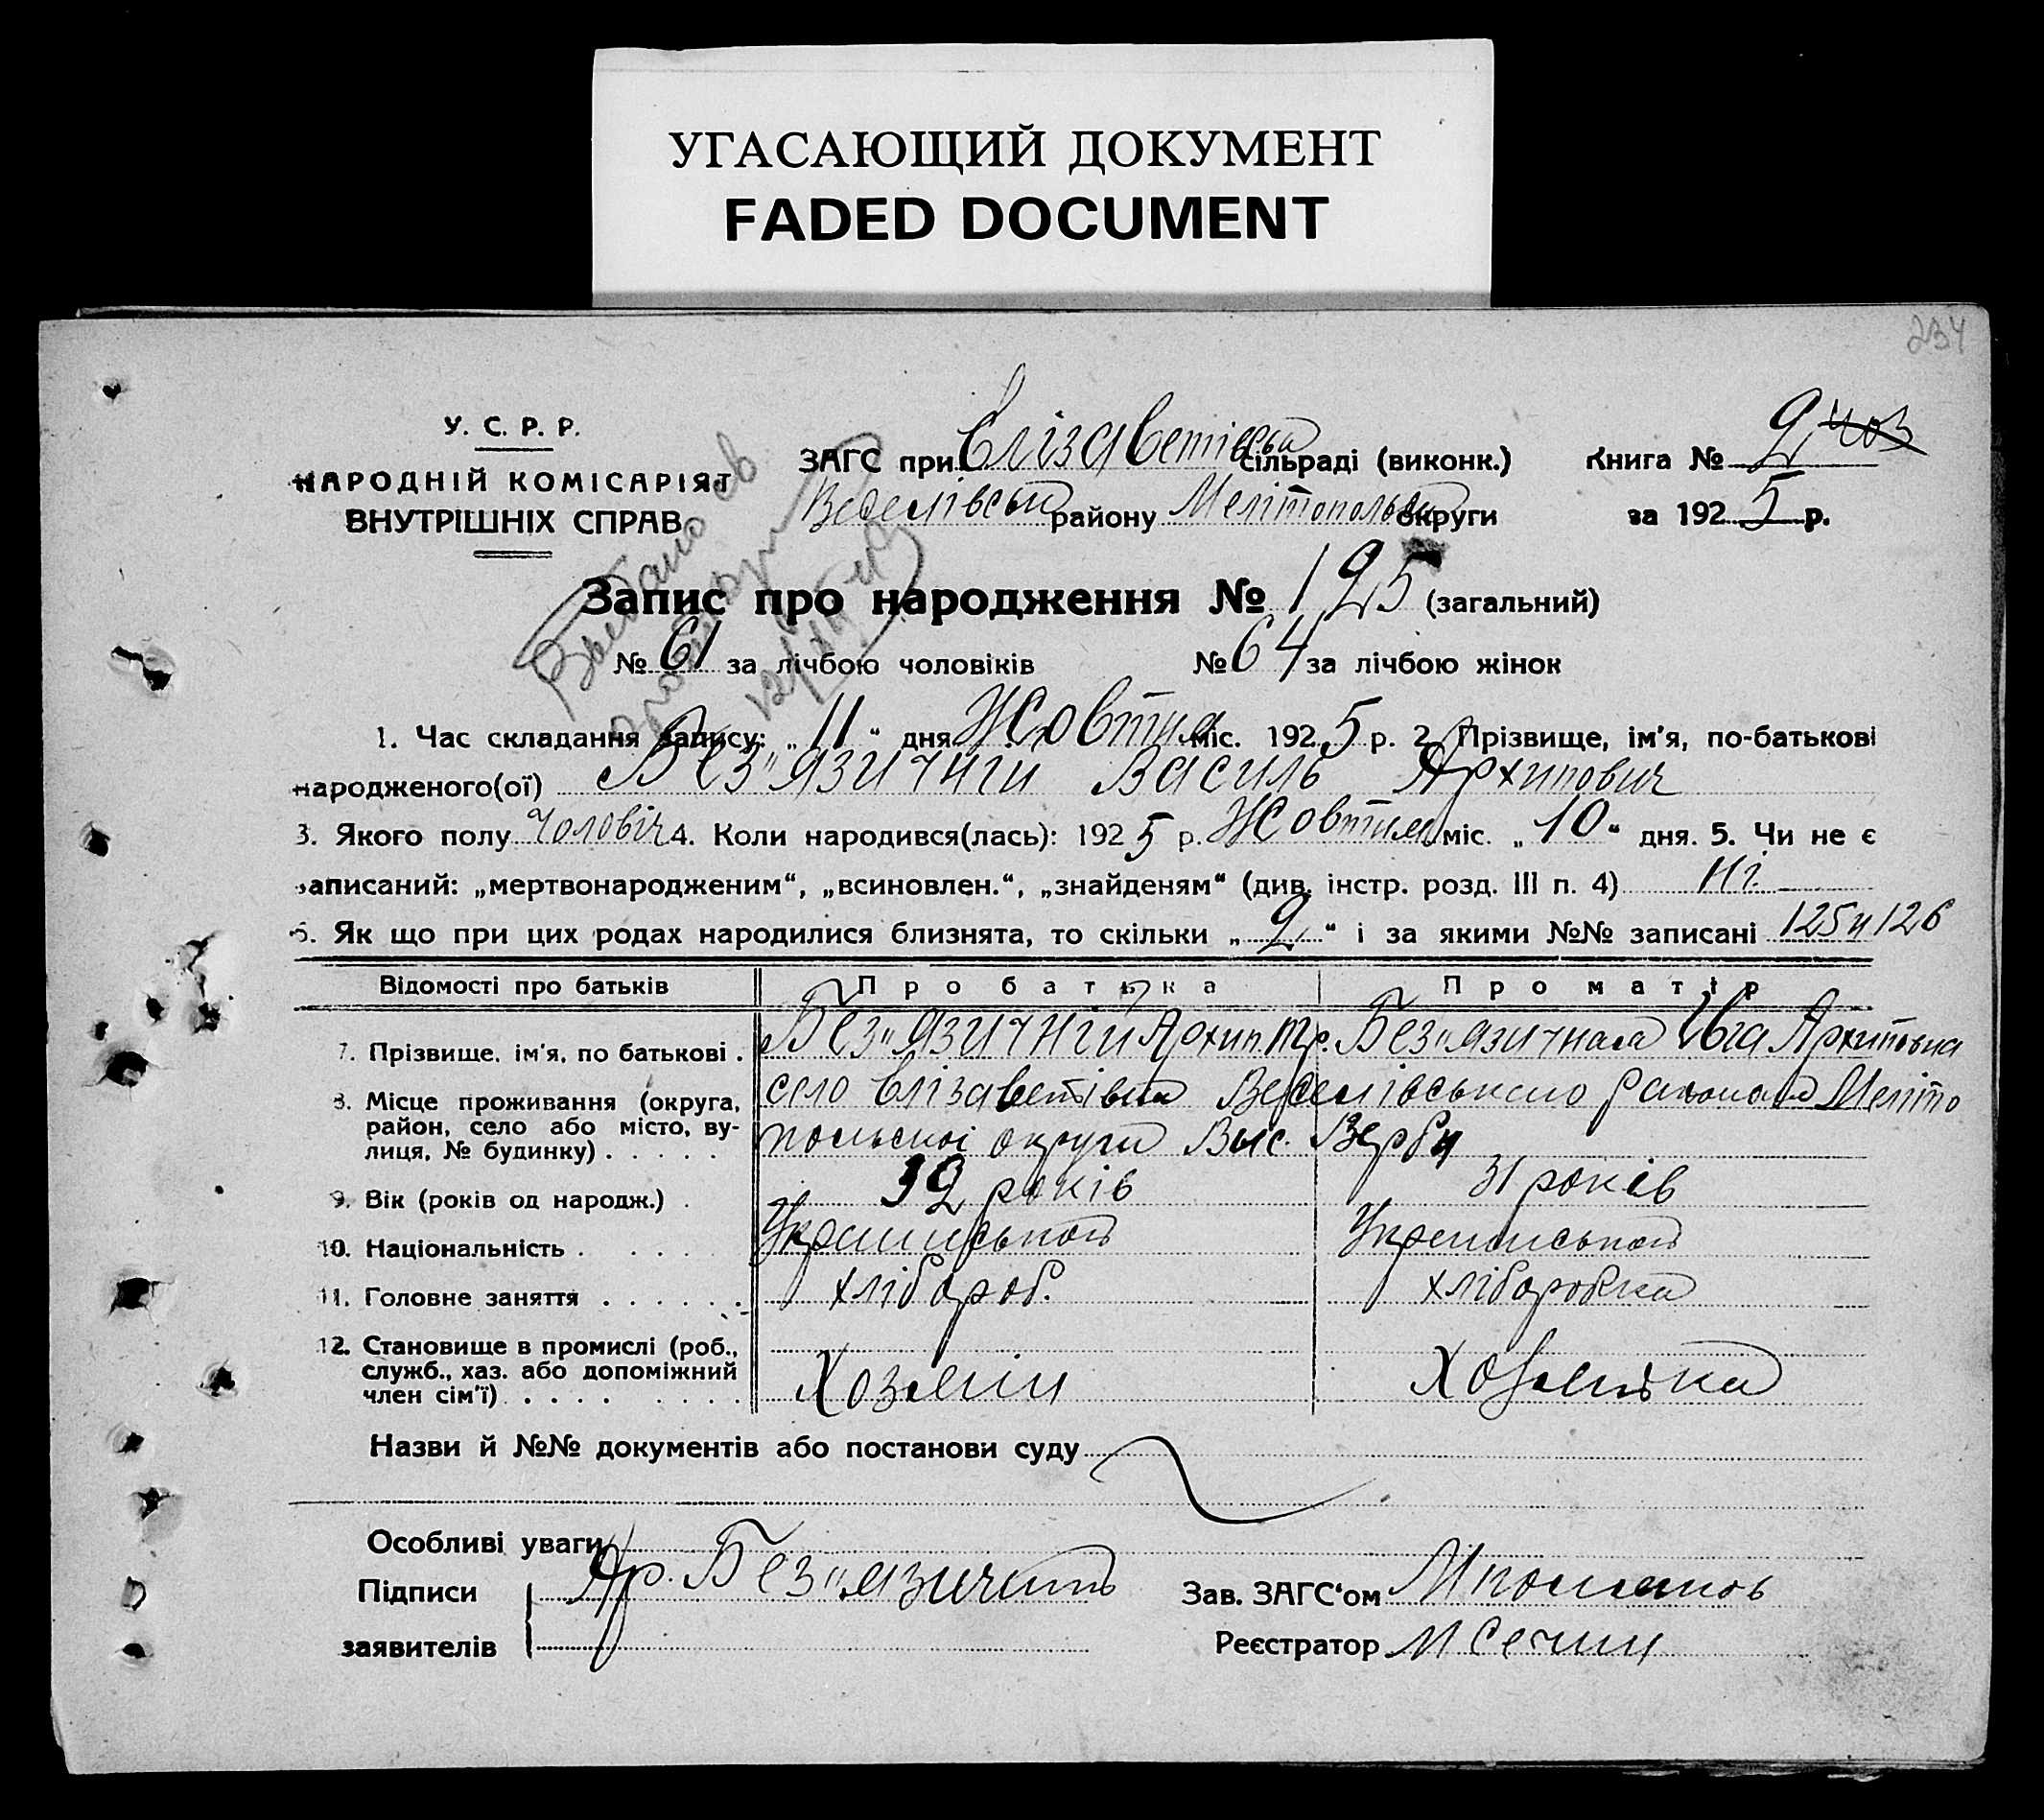 УГАСАЮЩИЙ ДОКУМЕНТ
FADED DOCUMENT
234
У. С. Р. Р.
НАРОДНІЙ КОМІСАРІЯТ
ВНУТРІШНІХ СПРАВ
ЗАГС при Єлізаветівська сільраді (виконк.) Книга № 2 403
Веселівськ району Мелітопольськ округи за 1925 р.
Запис про народження № 125 (загальний)
№ 61 за лічбою чоловіків № 64 за лічбою жінок
1. Час складання запису: „11“ дня Жовтня міс. 1925 р. 2. Прізвище, ім'я, по-батькові
народженого(ої) Без"язичний Василь Архипович
3. Якого полу Чоловіч 4. Коли народився(лась): 1925 р. Жовтня міс. „10“ дня. 5. Чи не є
записаний: „мертвонародженим“, „всиновлен.“, „знайденям“ (див. інстр. розд. III п. 4) Ні.
6. Як що при цих родах народилися близнята, то скільки „2“ і за якими №№ записані 125 и 126
Відомості про батьків Про батька Про матір
7. Прізвище, ім'я, по батькові . Без"язичний Архип Тр. Без"язичная Ева Архиповна
8. Місце проживання (округа, район, село або місто, вулиця, № будинку) . . . . . село Єлізаветівка Веселівського района Меліто
польскоі округи Выс. Верби
9. Вік (років од народж.) . 32 років 31 років
10. Національність . . . . Украинською Украинською
11. Головне заняття . . . . . . хлібороб. хліборобка
12. Становище в промислі (роб., служб., хаз. або допоміжний член сім'ї) . . . . . . . . Хозяїн Хозяйка
Назви й №№ документів або постанови суду
Особливі уваги
Підписи Ар. Без"язичний Зав. ЗАГС‘ом
заявителів Реєстратор